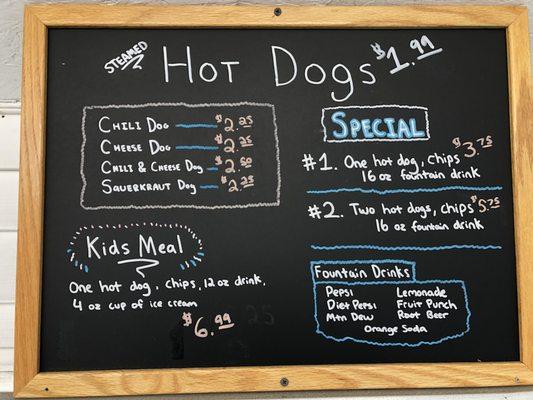 STEAMED
Hot Dogs $1.99
Chili Dog $2.25
Cheese Dog $2.25
Chili & Cheese Dog $2.50
Sauerkraut Dog $2.25
Kids Meal
One hot dog, chips, 12 oz drink,
4 oz cup of ice cream
$6.99
Special
#1. One hot dog, chips $3.75
16 oz fountain drink
#2. Two hot dogs, chips $5.75
16 oz fountain drink
Fountain Drinks
Pepsi Lemonade
Diet Pepsi Fruit Punch
Mtn Dew Root Beer
Orange Soda